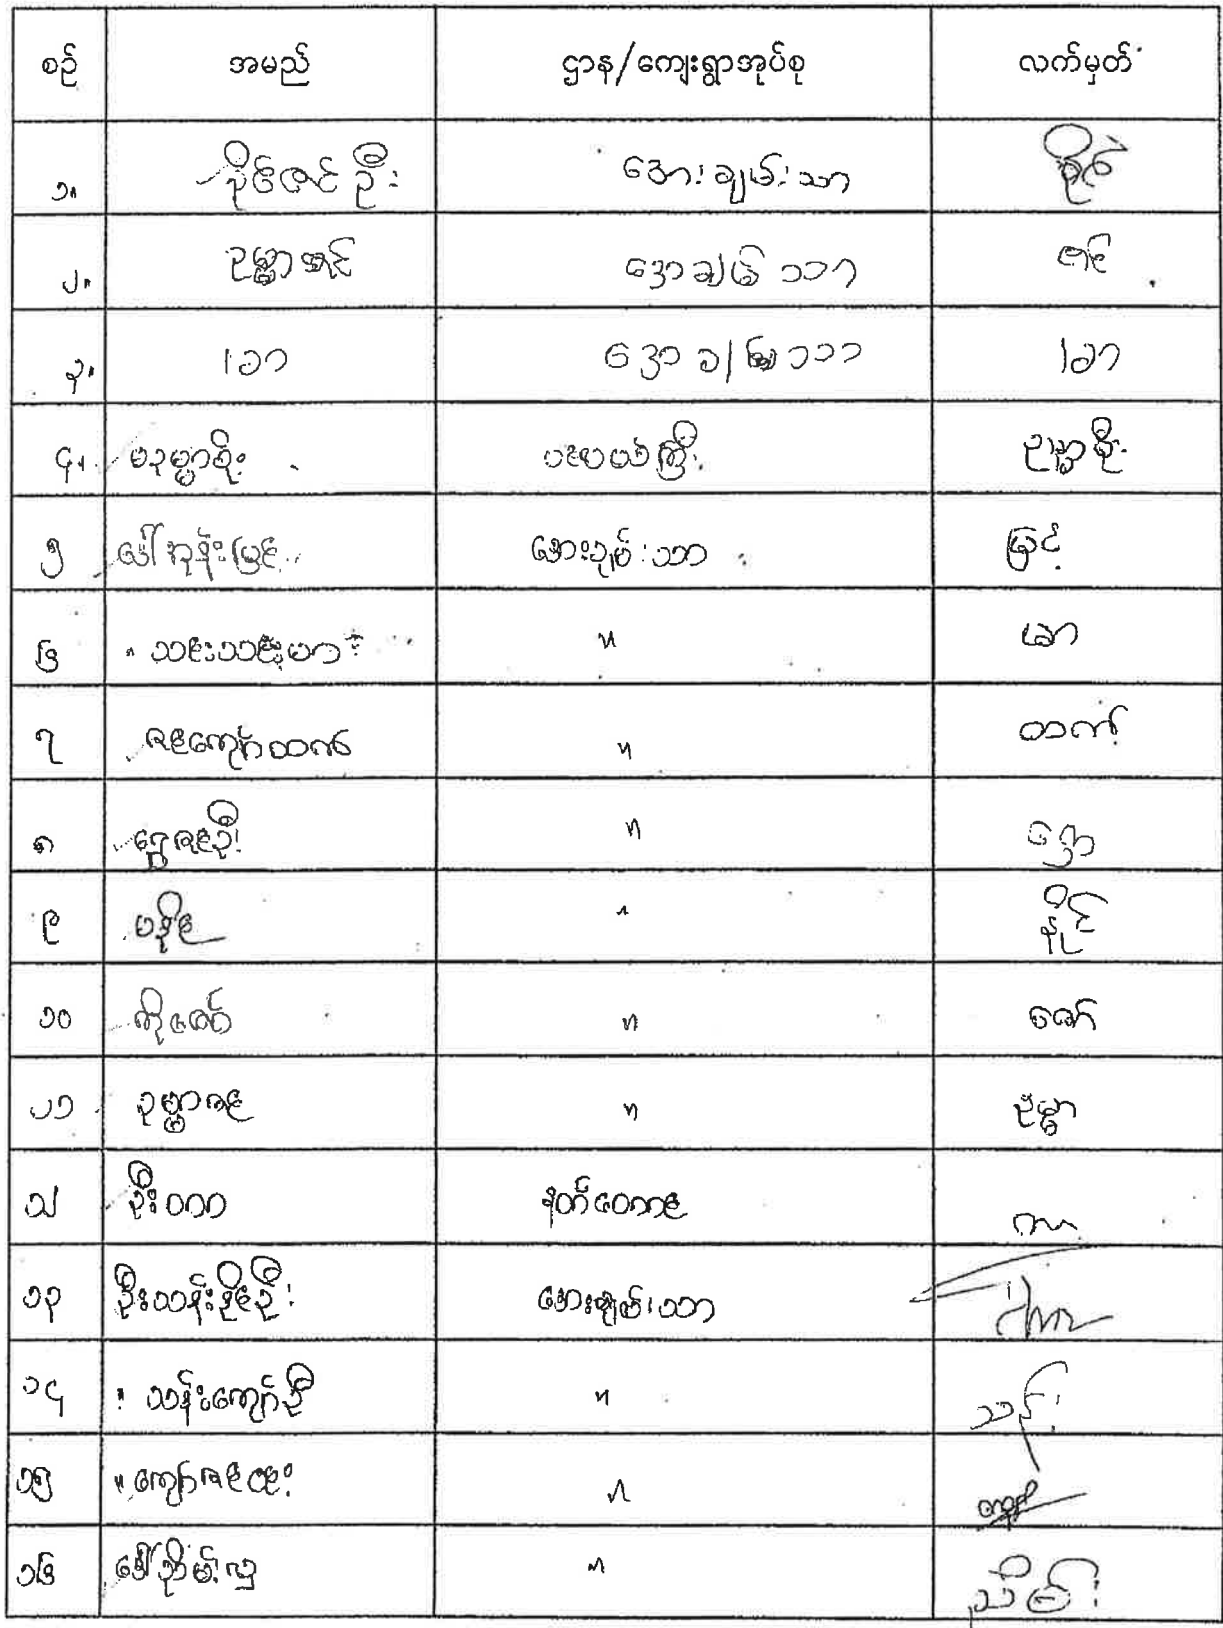 စဉ် အမည် ဌာန/ကျေးရွာအုပ်စု လက်မှတ်
၁။ စိုင်ဇင်ဦး အေးချမ်းသာ
၂။ ဥမ္မာဇင် အေချမ် သာ ဇင်
၃။ ၊ခာ အေချမ်းသာ ၊ခာ
၄။ မဥမ္မာစိုး ပင်မယ်ကြီး ဥမ္မာစိုး
၅ ဒေါ်ခုနှိုးမြင့် အေးချမ်းသာ မြင့်
၆ " သင်းသင်းမာ " မာ
၇ ဇင်ကျော်ထက် " ထက်
၈ ရွှေဇင်ဦး " ရွှေ
၉ မနိုင် " နိုင်
၁၀ ကိုဇော် " ဇော်
၁၁ ဥမ္မာဇင် " ဥမ္မာ
၁၂ ဦးဝကာ နတ်ဝေကင်
၁၃ ဦးသန်းနိုင်ဦး အေးချမ်းသာ
၁၄ " သန်းကျော်ဦး " သန်း
၁၅ " ကျော်ဇင်ထူး " ကျော်
၁၆ ဒေါ်သိမ်းလှ " သိမ်း